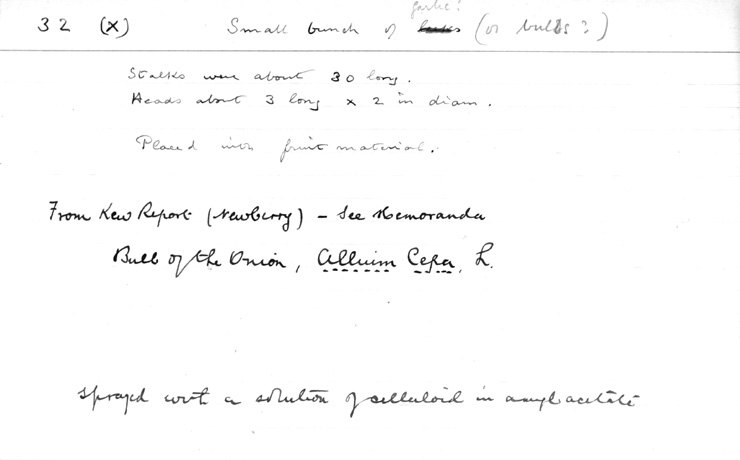 garlic?
32 (x) Small bunch of leeks (or bulbs?)
Stalks were about 30 long.
Heads about 3 long x 2 in diam.
Placed with fruit material.
From Kew Report (Newberry) - See Memoranda
Bulb of the Onion, Allium Cepa, L.
Sprayed with a solution of celluloid in amyl acetate